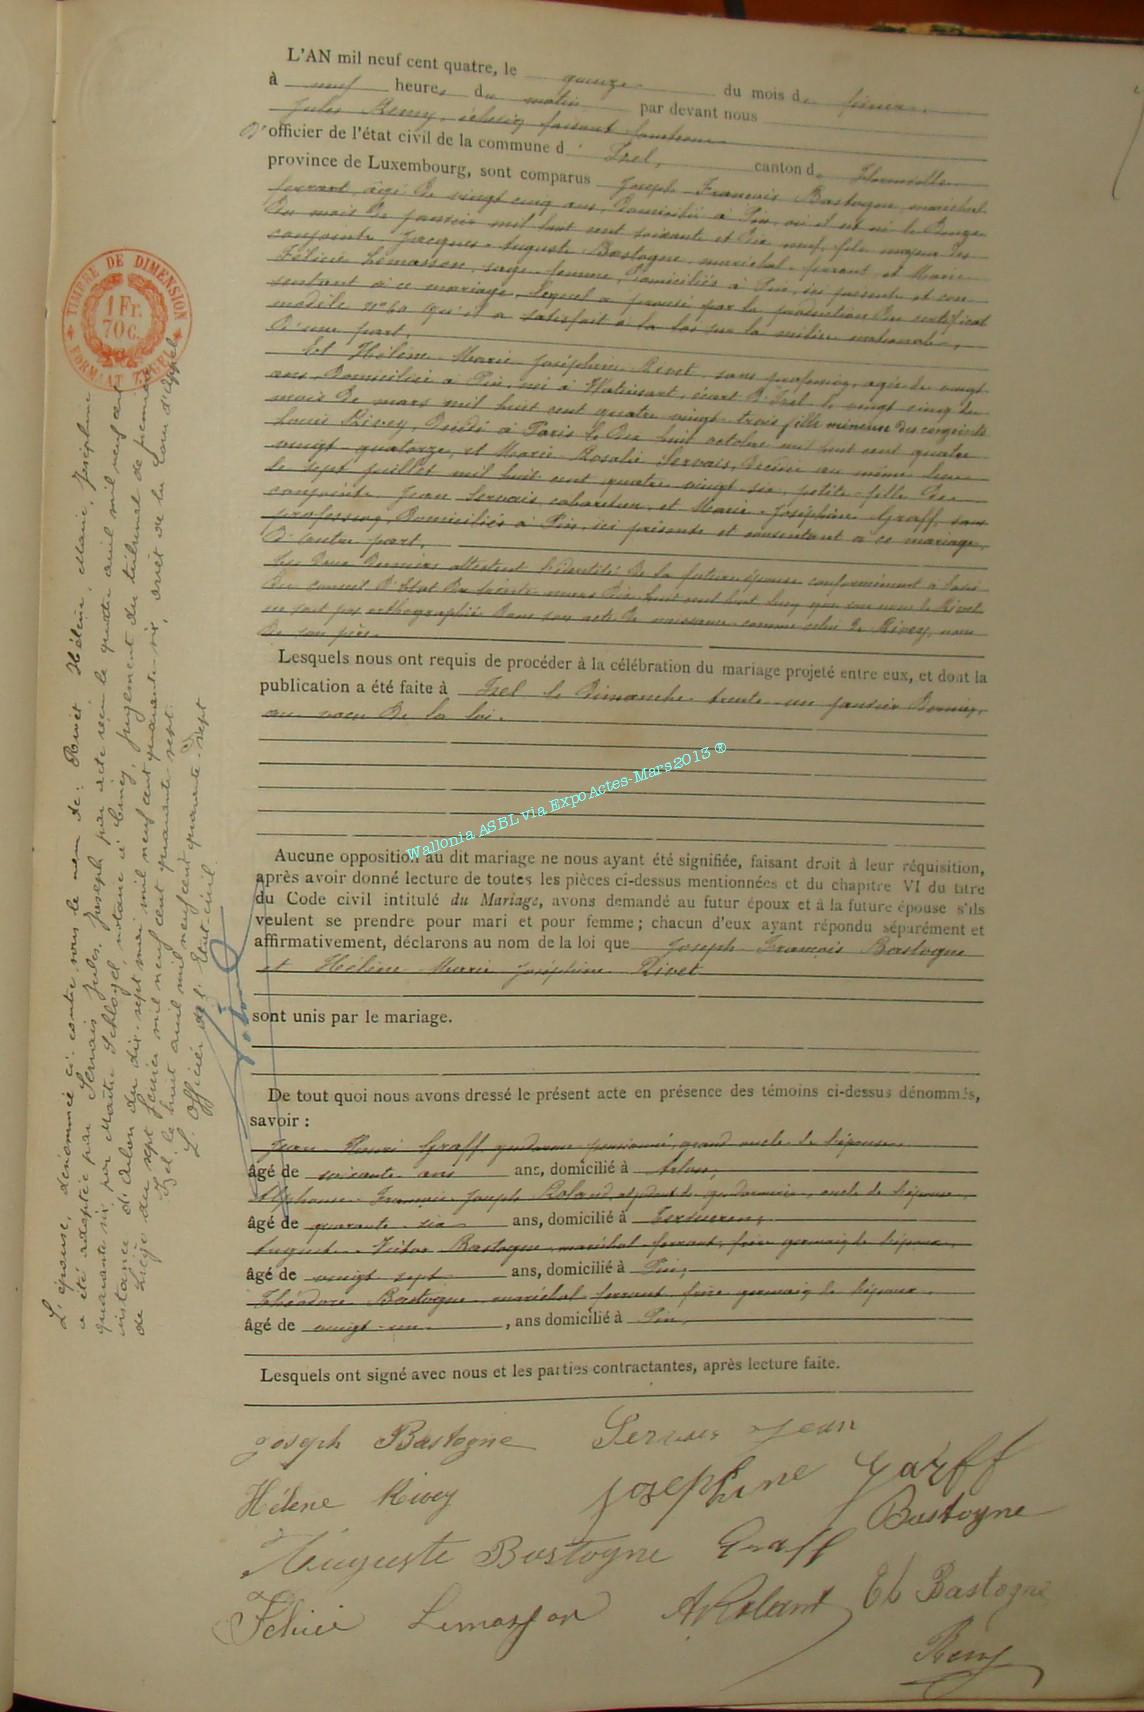 L'AN mil neuf cent quatre, le quinze du mois de février
à neuf heures du matin par devant nous
Jules Remy, échevin faisant fonctions
d'officier de l'état civil de la commune d'Izel, canton de Florenville
province de Luxembourg, sont comparus Joseph François Bastogne, maréchal
ferrant, âgé de vingt cinq ans, domicilié à Pin, où il est né le douze
du mois de janvier mil huit cent soixante et dix neuf, fils majeur des
conjoints Jacques Auguste Bastogne, maréchal ferrant, et Marie
Félicie Lemasson, sage-femme, domiciliés à Pin, ici présents et con
sentant à ce mariage, lequel a prouvé par la production du certificat
modèle n° 60 qu'il a satisfait à la loi sur la milice nationale,
d'une part,
Et Hélène Marie Joséphine Rivet, sans profession, agée de vingt
ans, domiciliée à Pin, née à écart d'Izel, le vingt cinq du
mois de mars mil huit cent quatre vingt trois, fille mineure des conjoints
Louis Rivey, décédé à Paris le dix huit octobre mil huit cent quatre
vingt quatorze, et Marie Rosalie Servais, décédée au même lieu
le sept juillet mil huit cent quatre vingt six, petite-fille des
conjoints Jean Servais, cabaretier, et Marie Joséphine Graff, sans
profession, domiciliés à Pin, ici présents et consentant à ce mariage,
d'autre part.
Les deux derniers attestent l'identité de la future épouse conformément à l'avis
du conseil d'Etat du trente mars mil huit cent huit bien que son nom de Rivet
ne soit pas orthographié dans son acte de naissance comme celui de Rivey, nom
de son père.
Lesquels nous ont requis de procéder à la célébration du mariage projeté entre eux, et dont la
publication a été faite à Izel le Dimanche trente un janvier dernier,
au vœu de la loi.
Wallonia ASBL via ExpoActes-Mars2013 ®
Aucune opposition au dit mariage ne nous ayant été signifiée, faisant droit à leur réquisition,
après avoir donné lecture de toutes les pièces ci-dessus mentionnées et du chapitre VI du titre
du Code civil intitulé du Mariage, avons demandé au futur époux et à la future épouse s'ils
veulent se prendre pour mari et pour femme ; chacun d'eux ayant répondu séparément et
affirmativement, déclarons au nom de la loi que Joseph François Bastogne
et Hélène Marie Joséphine Rivet
sont unis par le mariage.
De tout quoi nous avons dressé le présent acte en présence des témoins ci-dessus dénommés,
savoir :
Jean Henri Graff gendarme pensionné, grand oncle de l'épouse
âgé de soixante ans ans, domicilié à Arlon,
Alphonse François Joseph Roland, adjudant de gendarmerie, oncle de l'épouse
âgé de quarante six ans, domicilié à Tervueren,
Auguste Victor Bastogne, maréchal ferrant, frère germain de l'époux,
âgé de vingt sept ans, domicilié à Pin,
Théodore Bastogne, maréchal ferrant, frère germain de l'époux
âgé de vingt-un , ans domicilié à Pin,
Lesquels ont signé avec nous et les parties contractantes, après lecture faite.
Joseph Bastogne Servais Jean
Hélène Rivey Josephine Garff
Bastogne
Auguste Bastogne Graff
Félicie Lemasson ARoland Bastogne
Remy
TIMBRE DE DIMENSION
1 Fr.
70 C.
FORMAAT ZEGEL
L'épouse, dénommée ci-contre sous le nom de: Rivet Hélène, Marie, Joséphine
a été adoptée par Servais Jules, Joseph par acte reçu le quatre avril mil neuf cent
quarante six par Maître Schloyel, notaire à Ciney, jugement du tribunal de première
instance d'Arlon du dix-sept mai mil neuf cent quarante-six, arrêt de la Cour d'appel
de Liège du sept février mil neuf cent quarante sept.
Izel, le huit avril mil neuf cent quarante-sept
L'Officier de l'Etat-civil.